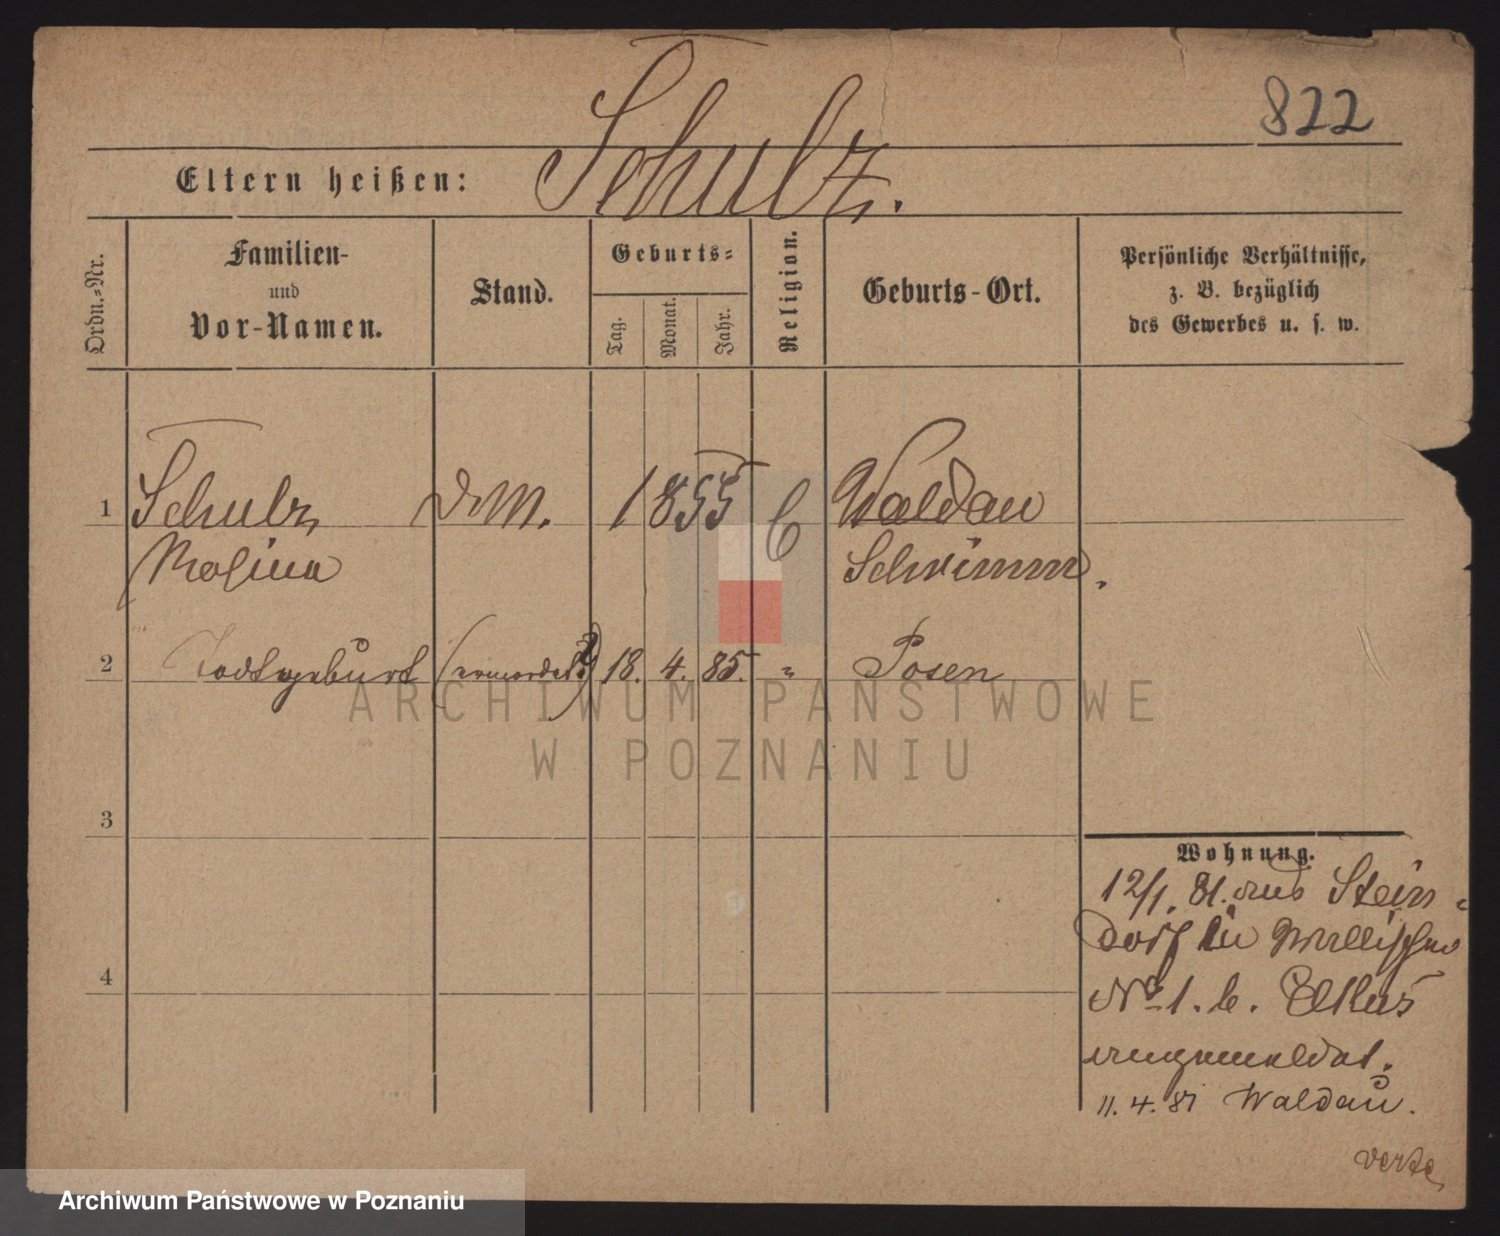 822
Schulz.
Eltern heißen:
Ordn.-Nr.
Familien-
und
Vor-Namen.
Stand.
Geburts-
Tag.
Monat.
Jahr.
Religion.
Geburts-Ort.
Persönliche Verhältnisse,
z. B. bezüglich
des Gewerbes u. s. w.
1 Schulz D. M. 1855 C Waldau
Rosina Schrimm.
2 Todtgeburt (ermordet?) 18. 4. 85. " Posen
ARCHIWUM PAŃSTWOWE
W POZNANIU
3
4
Wohnung.
12/1. 81. aus Stein-
dorf in Wallischei
No 1. b. Elkus
angemeldet.
11. 4. 81 Waldau.
verte
Archiwum Państwowe w Poznaniu